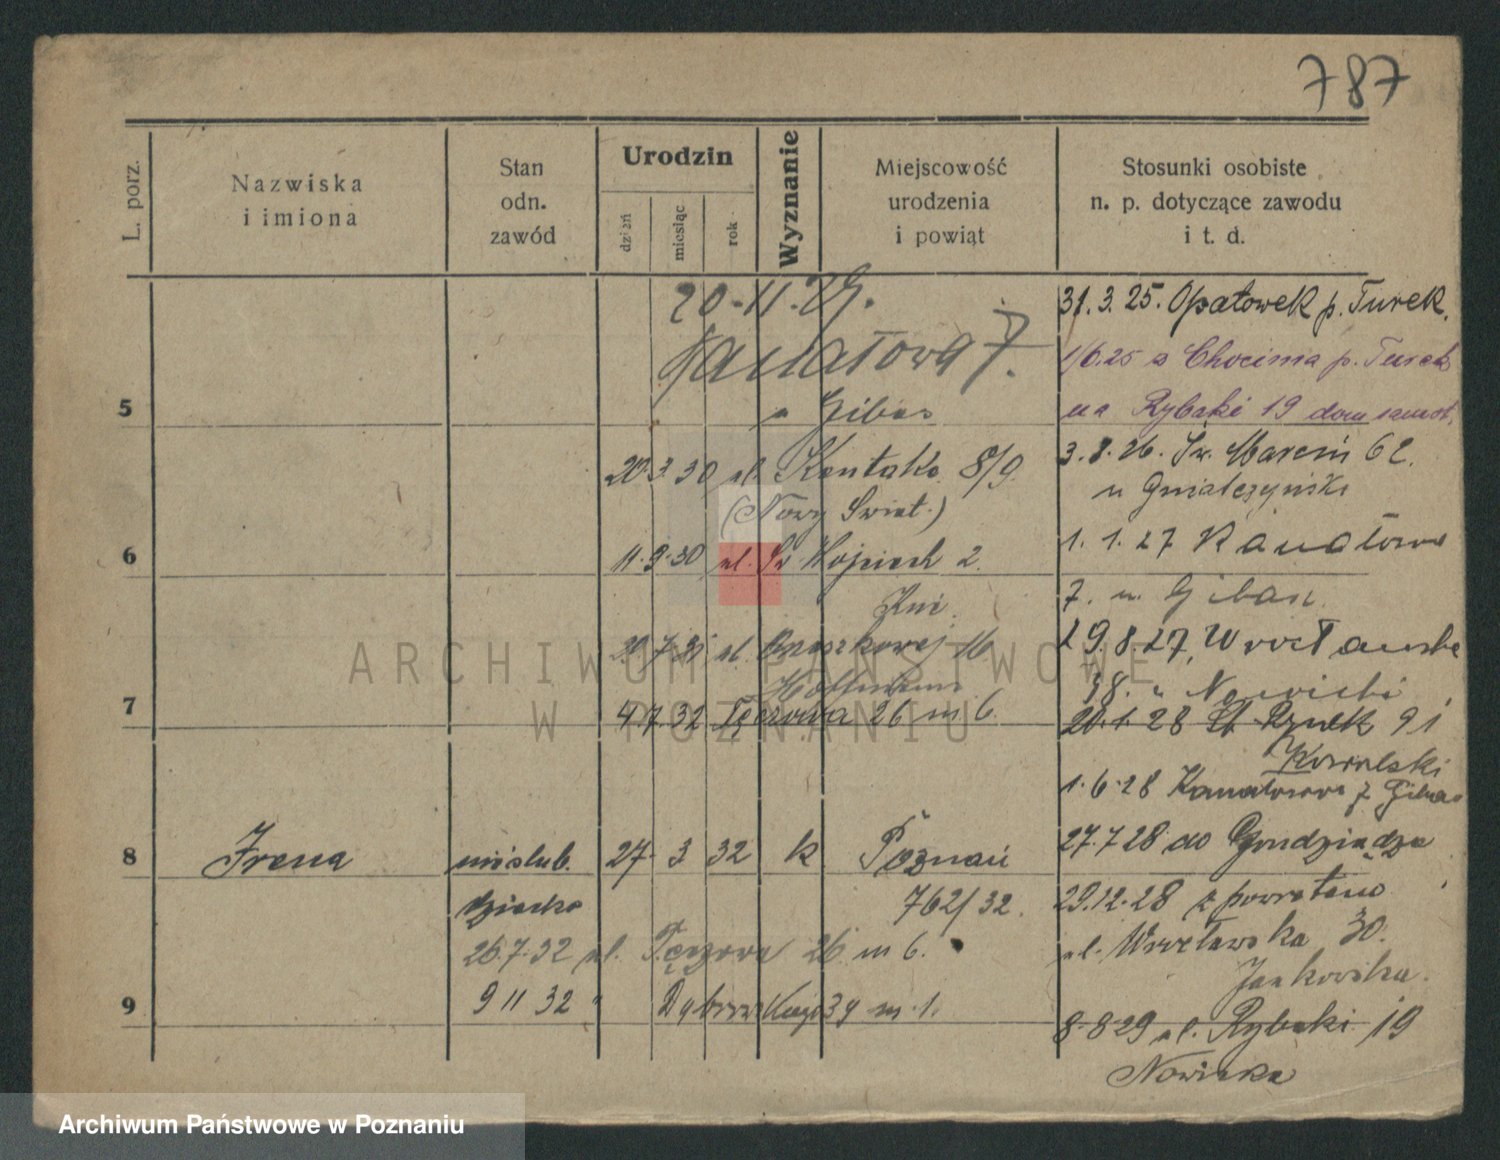 787
L. porz.
Nazwiska
i imiona
Stan
odn.
zawód
Urodzin
dzień
miesiąc
rok
Wyznanie
Miejscowość
urodzenia
i powiąt
Stosunki osobiste
n. p. dotyczące zawodu
i t. d.
20-11.29.
Kanałowa 7.
u Gibas
20.3.30 ul. Kantaka 8/9.
(Nowy Swiat.)
11.9.30 ul. Św. Wojciech 2.
7. ul. 16
4.7.32 Tęczowa 26 m 6.
5
6
7
8
Irena
nieślub.
dziecko
27 3 32
k
Poznań
762/32.
26.7.32 ul. Tęczowa 26 m 6.
9
9 11 32 " Dąbrowskiego 39 m. 1.
31.3.25. Opatowek p. Turek.
1/6.25 z Chocima p. Turek
na Rybaki 19 dom
3.8.26. Św. Marcin 62.
u
1.1.27 Kanałowa
7. u. Giban
29.8.27, Wrocławska
18. u Nowicki
20.1.28 St. Rynek 91
Kowalski
1.6.28 Kanałowa 7 Gibas
27.7.28 do Grudziądza
29.12.28 z powrotem
ul. Wrocławska 30.
Jankowska.
8-8-29 ul. Rybaki 19
Nowicka
ARCHIWUM PAŃSTWOWE
W POZNANIU
Archiwum Państwowe w Poznaniu